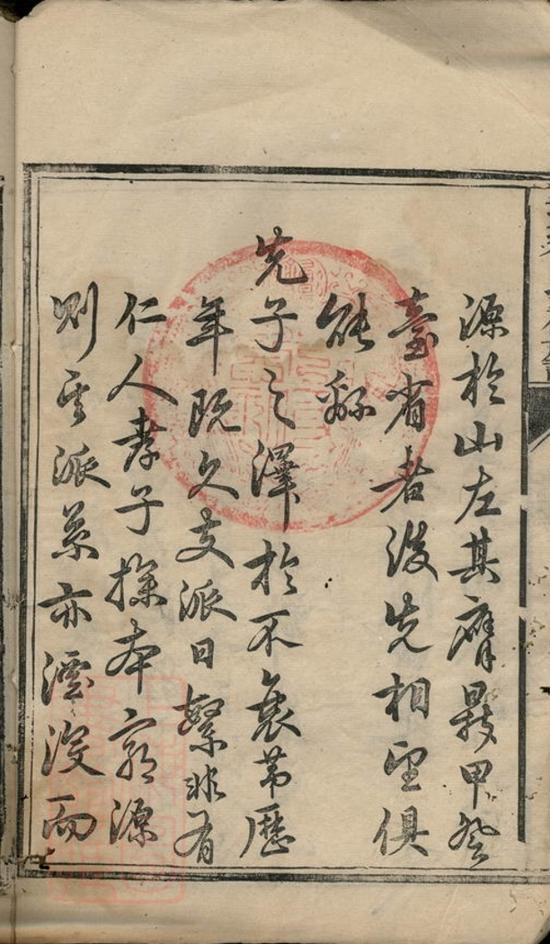 源於山左其膺最甲登
臺省者後先相望俱
能繇
先子之澤於不衰第歷
年既久支派日繁非有
仁人孝子探本窮源
則其派系亦湮没而